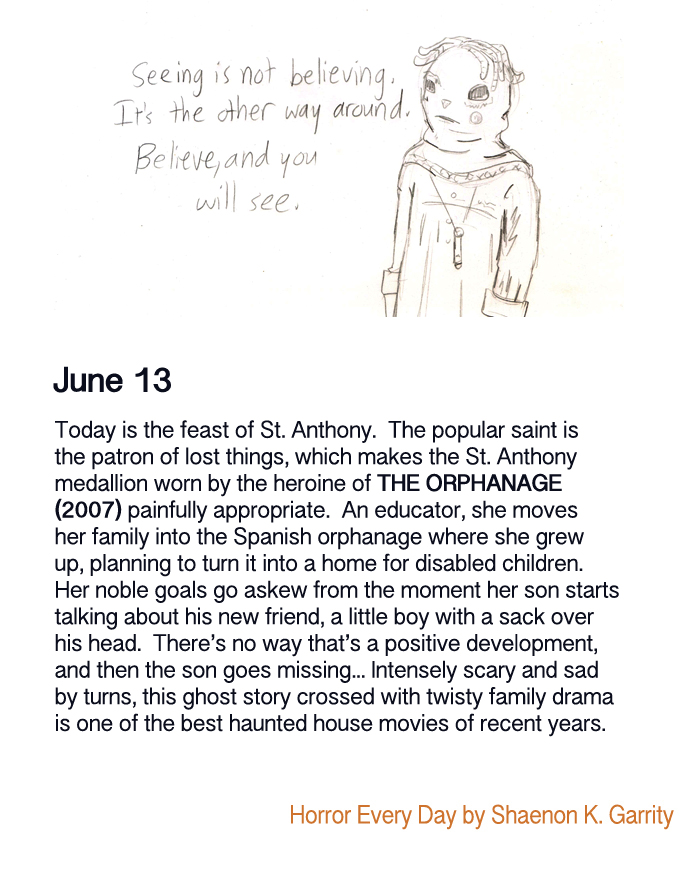 Seeing is not believing.
It's the other way around.
Believe, and you
will see.
June 13
Today is the feast of St. Anthony.  The popular saint is
the patron of lost things, which makes the St. Anthony
medallion worn by the heroine of THE ORPHANAGE
(2007) painfully appropriate.  An educator, she moves
her family into the Spanish orphanage where she grew
up, planning to turn it into a home for disabled children.
Her noble goals go askew from the moment her son starts
talking about his new friend, a little boy with a sack over
his head.  There’s no way that’s a positive development,
and then the son goes missing... Intensely scary and sad
by turns, this ghost story crossed with twisty family drama
is one of the best haunted house movies of recent years.
Horror Every Day by Shaenon K. Garrity